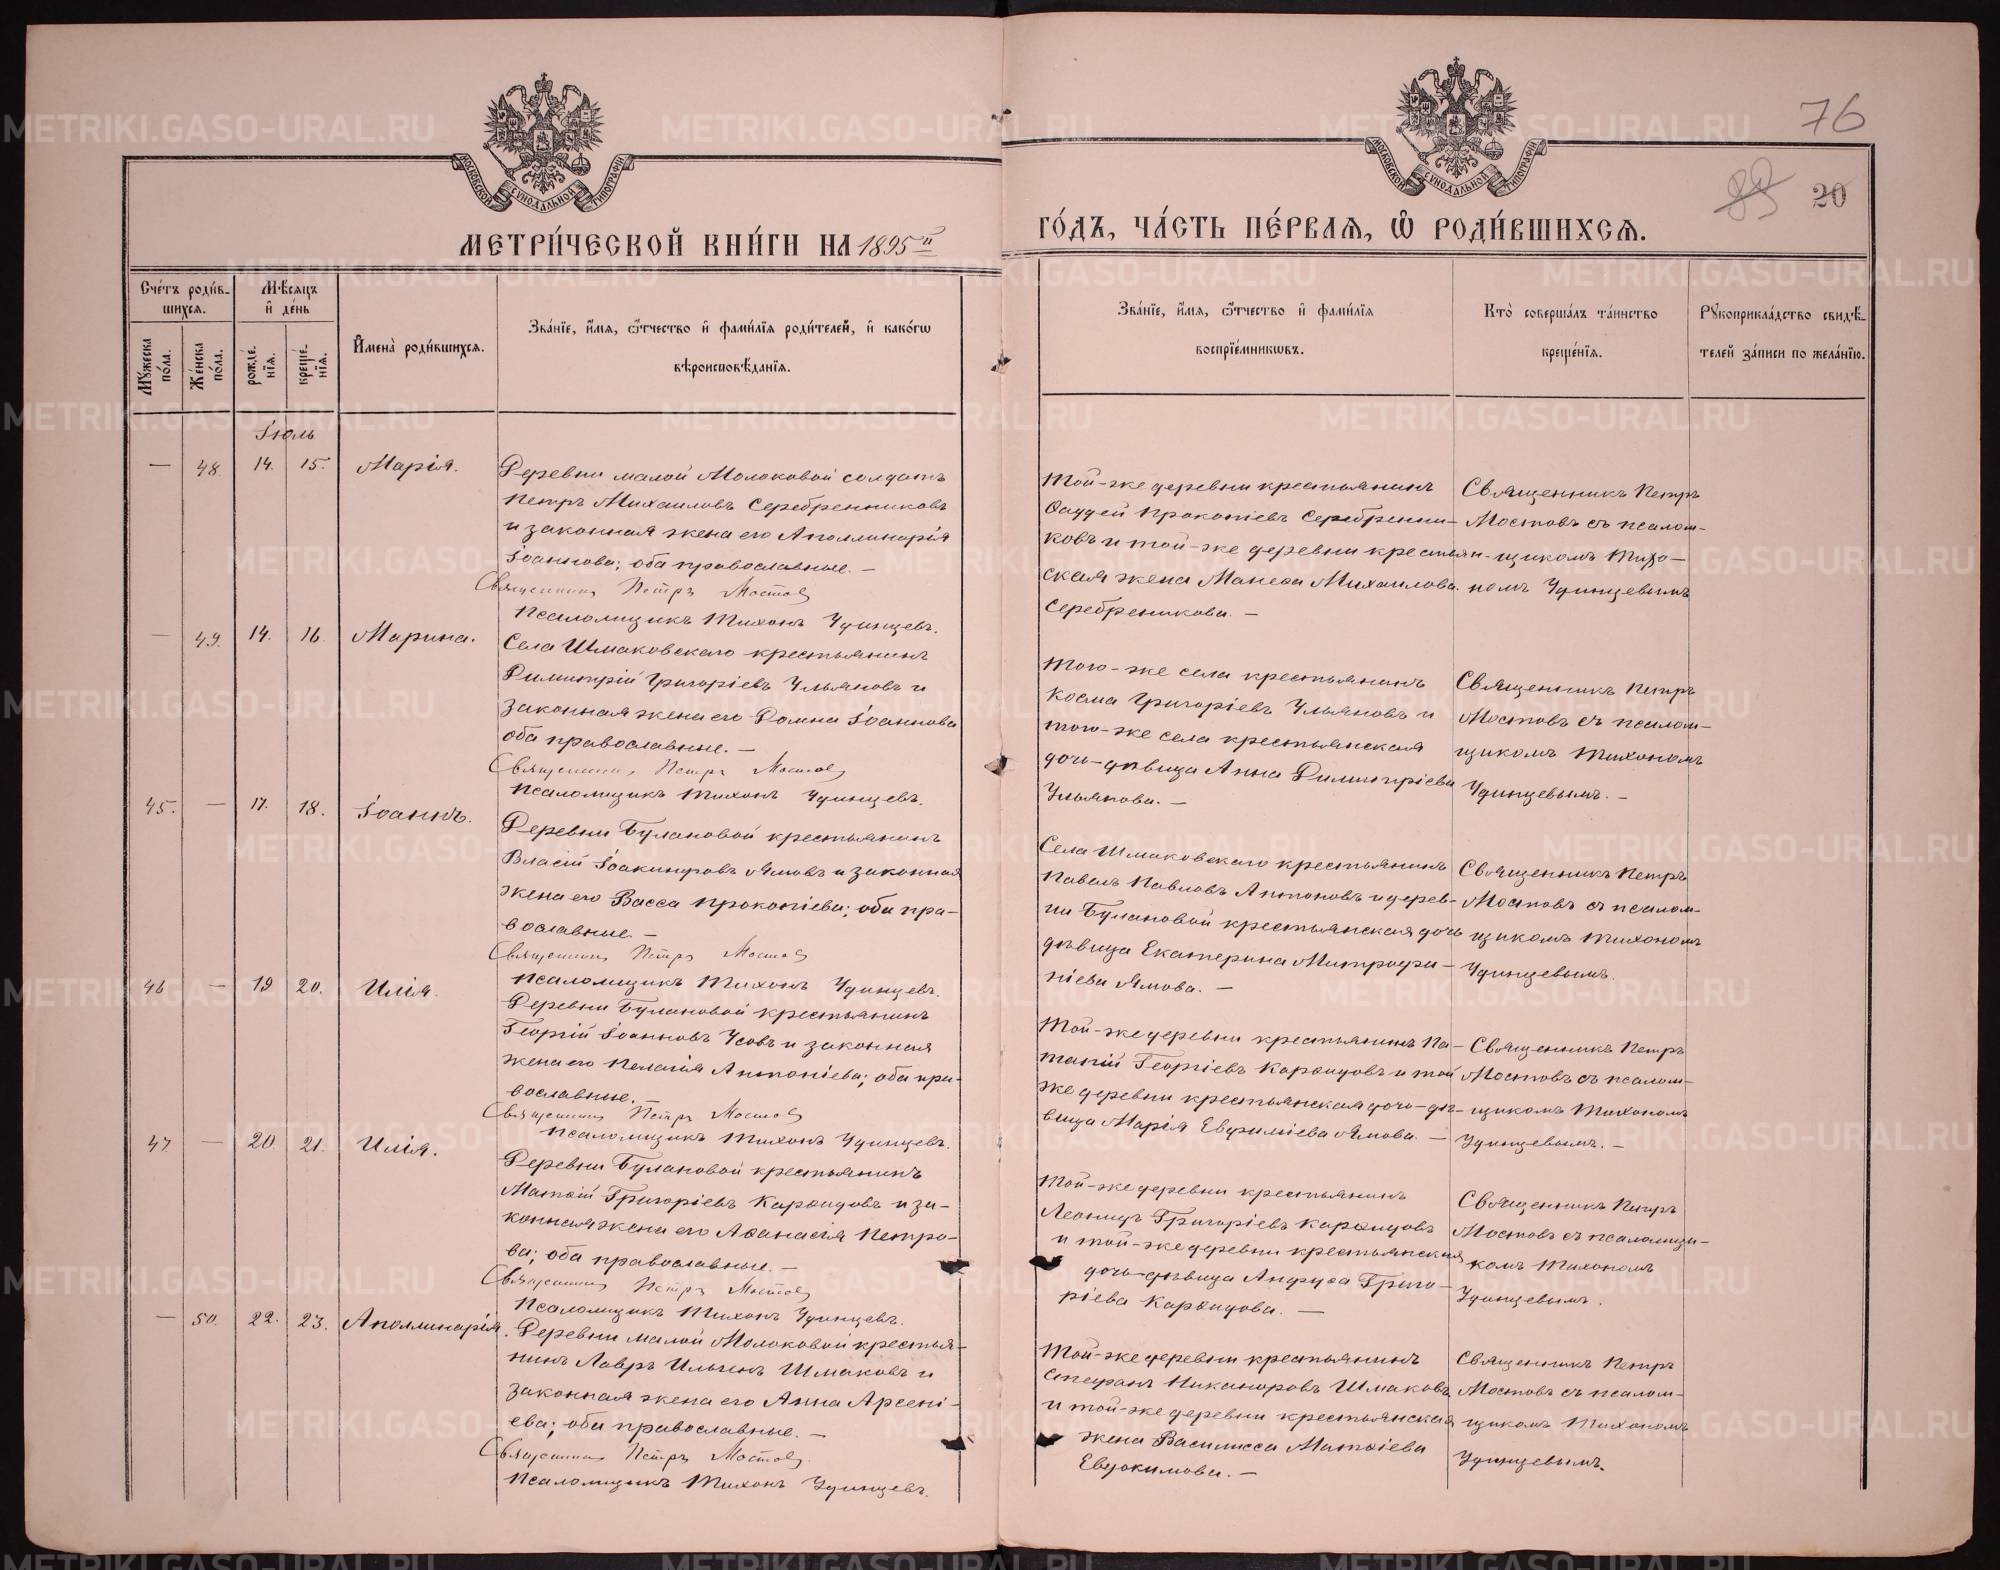 76
20
МОСКОВСКОЙ СѴНОДАЛЬНОЙ ТИПОГРАФІИ
МОСКОВСКОЙ СѴНОДАЛЬНОЙ ТИПОГРАФІИ
МЕТРИ́ЧЕСКОЙ КНИ́ГИ НА 1895й
ГО́ДЪ, ЧА́СТЬ ПЕ́РВАѦ, Ѡ҆ РОДИ́ВШИХСѦ.
Сче́тъ роди́в-
шихсѧ.
Мꙋ́жеска по́ла.
Же́нска по́ла.
Мѣ́сѧцъ
и҆ де́нь
рожде́нїѧ.
креще́нїѧ.
И҆мена̀ роди́вшихсѧ.
Зва́нїе, и҆́мѧ, ѻ҆́тчество и҆ фами́лїѧ роди́телей, и҆ како́гѡ
вѣроисповѣ́данїѧ.
Зва́нїе, и҆́мѧ, ѻ҆́тчество и҆ фами́лїѧ
воспрїе́мникѡвъ.
Кто̀ соверша́лъ та́инство
креще́нїѧ.
Рꙋкоприкла́дство свидѣ́-
телей за́писи по жела́нїю.
Іюль
— 48. 14. 15. Марія.
Деревни малой Молоковой солдатъ
Петръ Михаиловъ Серебренниковъ
и законная жена его Аполлинарія
Іоаннова; оба православные. —
Священникъ Петръ Мостовъ
Псаломщикъ Тихонъ Удинцевъ.
Той-же деревни крестьянинъ
Ѳаддей Прокопіевъ Серебренни-
ковъ и той-же деревни крестьян-
ская жена Манеѳа Михаилова
Серебреникова. —
Священникъ Петръ
Мостовъ съ псалом-
щикомъ Тихо-
номъ Удинцевымъ
— 49. 14. 16. Марина.
Села Шмаковскаго крестьянинъ
Димитрій Григоріевъ Ульяновъ и
законная жена его Домна Іоаннова
оба православные. —
Священникъ Петръ Мостовъ
Псаломщикъ Тихонъ Удинцевъ.
Того-же села крестьянинъ
Косма Григоріевъ Ульяновъ и
того-же села крестьянская
дочь-дѣвица Анна Димитріева
Ульянова. —
Священникъ Петръ
Мостовъ съ псалом-
щикомъ Тихономъ
Удинцевымъ. —
45. — 17. 18. Іоаннъ.
Деревни Булановой крестьянинъ
Власій Іоакимовъ Ямовъ и законная
жена его Васса Прокопіева; оба пра-
вославные. —
Священникъ Петръ Мостовъ
Псаломщикъ Тихонъ Удинцевъ.
Села Шмаковскаго крестьянинъ
Павелъ Павловъ Антоновъ и дерев-
ни Булановой крестьянская дочь
дѣвица Екатерина Митрофа-
ніева Ямова. —
Священникъ Петръ
Мостовъ съ псалом-
щикомъ Тихономъ
Удинцевымъ.
46 — 19 20. Илія.
Деревни Булановой крестьянинъ
Георгій Іоанновъ Усовъ и законная
жена его Пелагія Антоніева; оба пра-
вославные. —
Священникъ Петръ Мостовъ
Псаломщикъ Тихонъ Удинцевъ.
Той-же деревни крестьянинъ Па-
тапій Георгіевъ и той
же деревни крестьянская дочь-дѣ-
вица Марія Евфиміева Ямова. —
Священникъ Петръ
Мостовъ съ псалом-
щикомъ Тихономъ
Удинцевымъ. —
47. — 20. 21. Илія.
Деревни Булановой крестьянинъ
Матѳій Григоріевъ и за-
конная жена его Аѳанасія Петро-
ва; оба православные. —
Священникъ Петръ Мостовъ
Псаломщикъ Тихонъ Удинцевъ.
Той-же деревни крестьянинъ
Леонидъ Григоріевъ
и той-же деревни крестьянская
дочь-дѣвица Анфуса Григо-
ріева —
Священникъ Петръ
Мостовъ съ псаломщи-
комъ Тихономъ
Удинцевымъ.
— 50. 22. 23. Аполлинарія.
Деревни малой Молоковой крестья-
нинъ Лавръ Ильинъ Шмаковъ и
законная жена его Анна Арсені-
ева; оба православные. —
Священникъ Петръ Мостовъ.
Псаломщикъ Тихонъ Удинцевъ.
Той-же деревни крестьянинъ
Стефанъ Никаноровъ Шмаковъ
и той-же деревни крестьянская
жена Василисса Матѳіева
Евдокимова. —
Священникъ Петръ
Мостовъ съ псалом-
щикомъ Тихономъ
Удинцевымъ.
METRIKI.GASO-URAL.RU